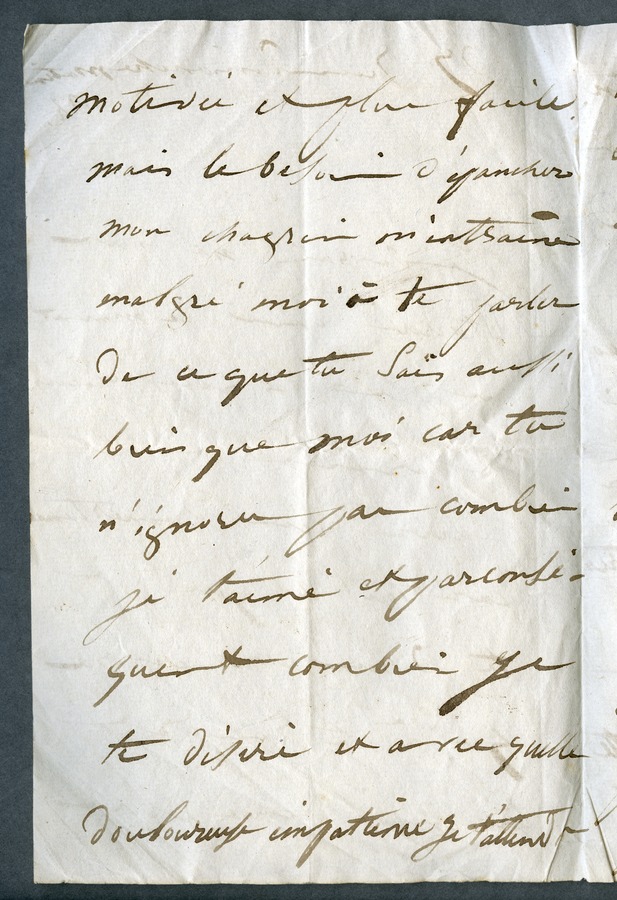 motivée et plus facile.
mais le besoin d'épancher
mon chagrin m'entraine
malgré moi à te parler
De ce que tu Sais aussi
bien que moi car tu
n'ignores pas combien
je t'aime et parconsé-
quent combien je
te désire et avec quelle
douloureuse impatience Je t'attends